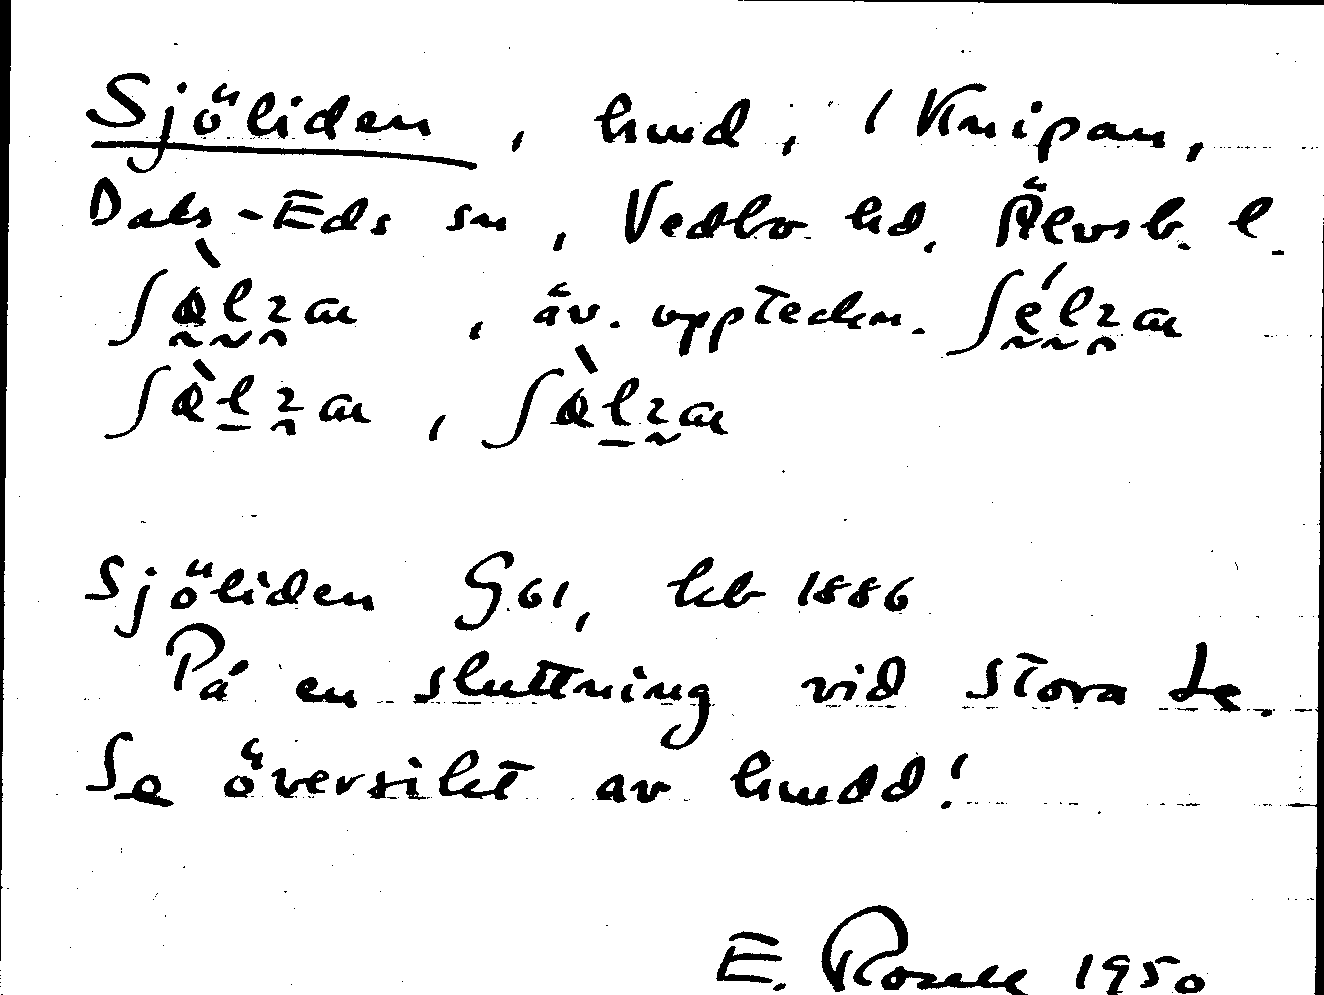 Sjöliden, hmd, i Knipan,
Dals-Eds sn, Vedbo hd. Älvsb. l.
, äv. uppteckn.
,
Sjöliden G 61, kb 1886
På en sluttning vid Stora Le.
Se översikt av hmdd!
E. Rosell 1950